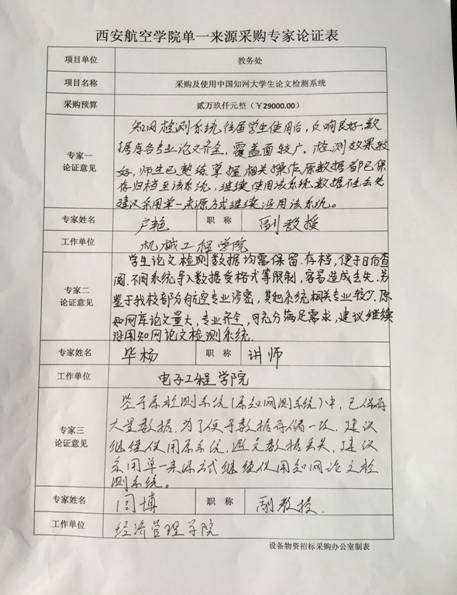 西安航空学院单一来源采购专家论证表
项目单位 教务处
项目名称 采购及使用中国知网大学生论文检测系统
采购预算 贰万玖仟元整（￥29000.00）
专家一 论证意见
知网检测系统往届学生使用后，反响良好，数
据库各专业论文齐全，覆盖面较广，检测效果较
好，师生已熟练掌握相关操作，原数据都已保
存归档至该系统，继续使用该系统数据不丢失
建议采用单一来源方式继续沿用该系统。
专家姓名 卢艳 职 称 副教授
工作单位 机械工程学院
专家二 论证意见
学生论文检测数据均需保留、存档，便于日后查
阅，不同系统导入数据受格式等限制，容易造成丢失，另
鉴于我校部分航空专业涉密，其他系统相关专业较少，原
知网库论文量大，专业齐全，可充分满足需求，建议继续
沿用知网论文检测系统.
专家姓名 华杨 职 称 讲师
工作单位 电子工程学院
专家三 论证意见
鉴于原检测系统（原知网测系统）中，已保存
大量数据，为了便于数据存储一致，建议
继续使用原系统，避免数据丢失，建议
采用单一来源方式继续使用知网论文检
测系统。
专家姓名 闫博 职 称 副教授.
工作单位 经济管理学院
设备物资招标采购办公室制表